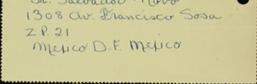 Sr. Salvador Novo
1308 Av. Francisco Sosa
Z.P. 21
Mexico D.F. Mexico